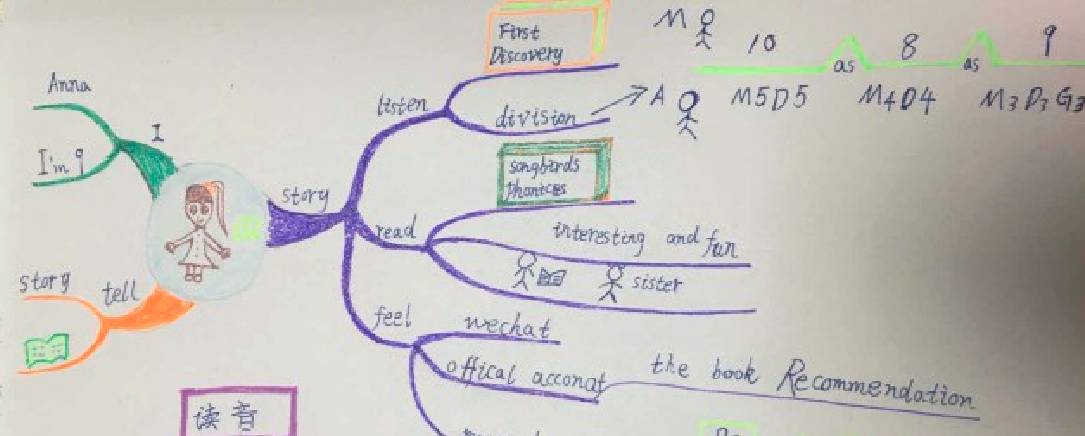 First
Discovery
M 10 as 8 as 9
Anna
I
I'm 9
listen
division
A M5D5 M4D4 M3D3G3
songbirds
Phonices
story
read
interesting and fun
sister
story
tell
feel
wechat
offical acconat
the book Recommendation
读音